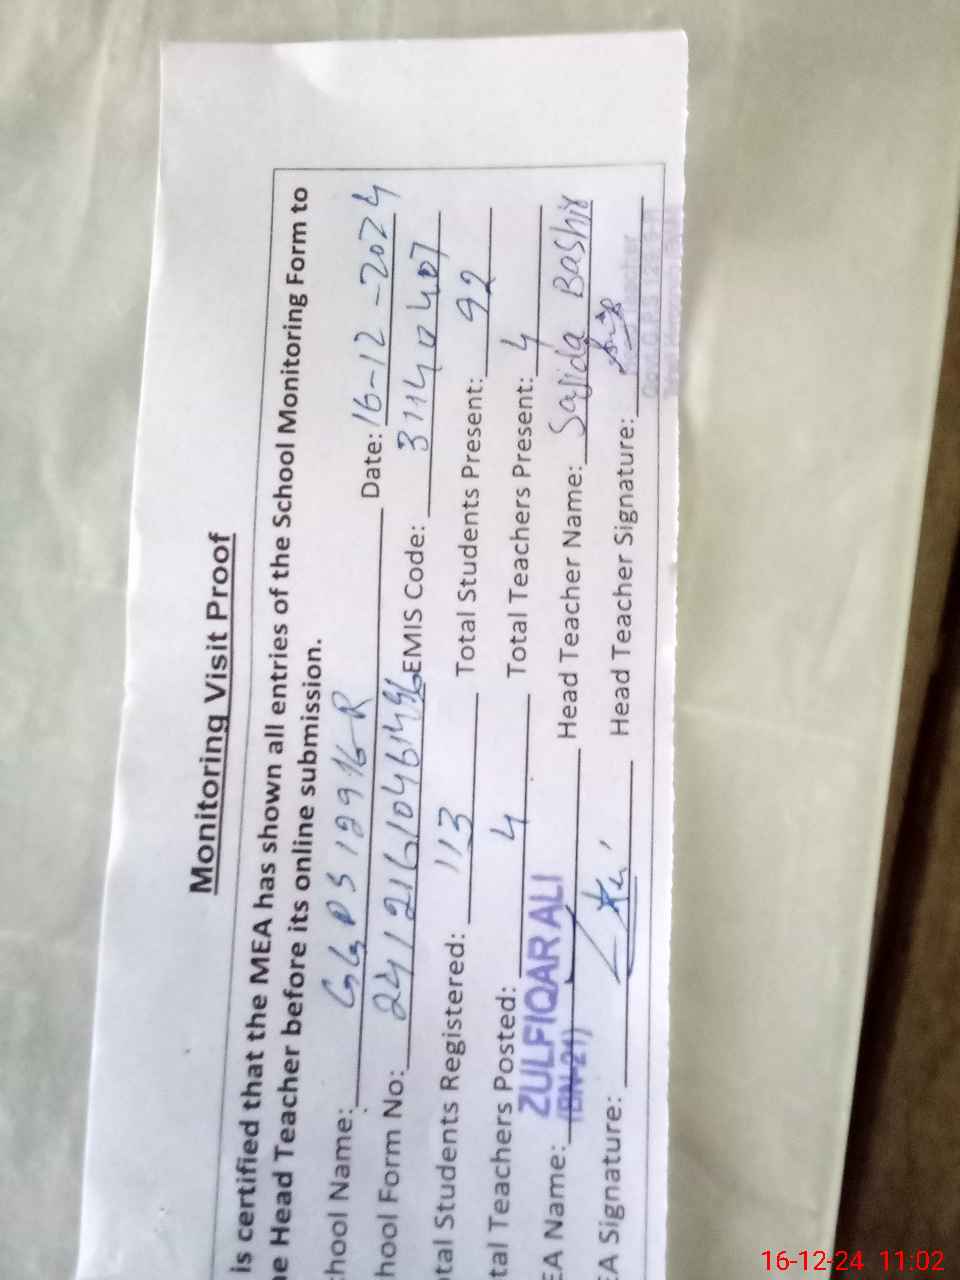 Monitoring Visit Proof
is certified that the MEA has shown all entries of the School Monitoring Form to
e Head Teacher before its online submission.
hool Name: GGPS 129 16-R Date: 16-12-2024
hool Form No: EMIS Code: 31140407
tal Students Registered: 113 Total Students Present: 92
tal Teachers Posted: 4 Total Teachers Present: 4
EA Name: ZULFIQAR ALI (BN-21) Head Teacher Name: Sajida Bashir
A Signature: Head Teacher Signature:
16-12-24 11:02